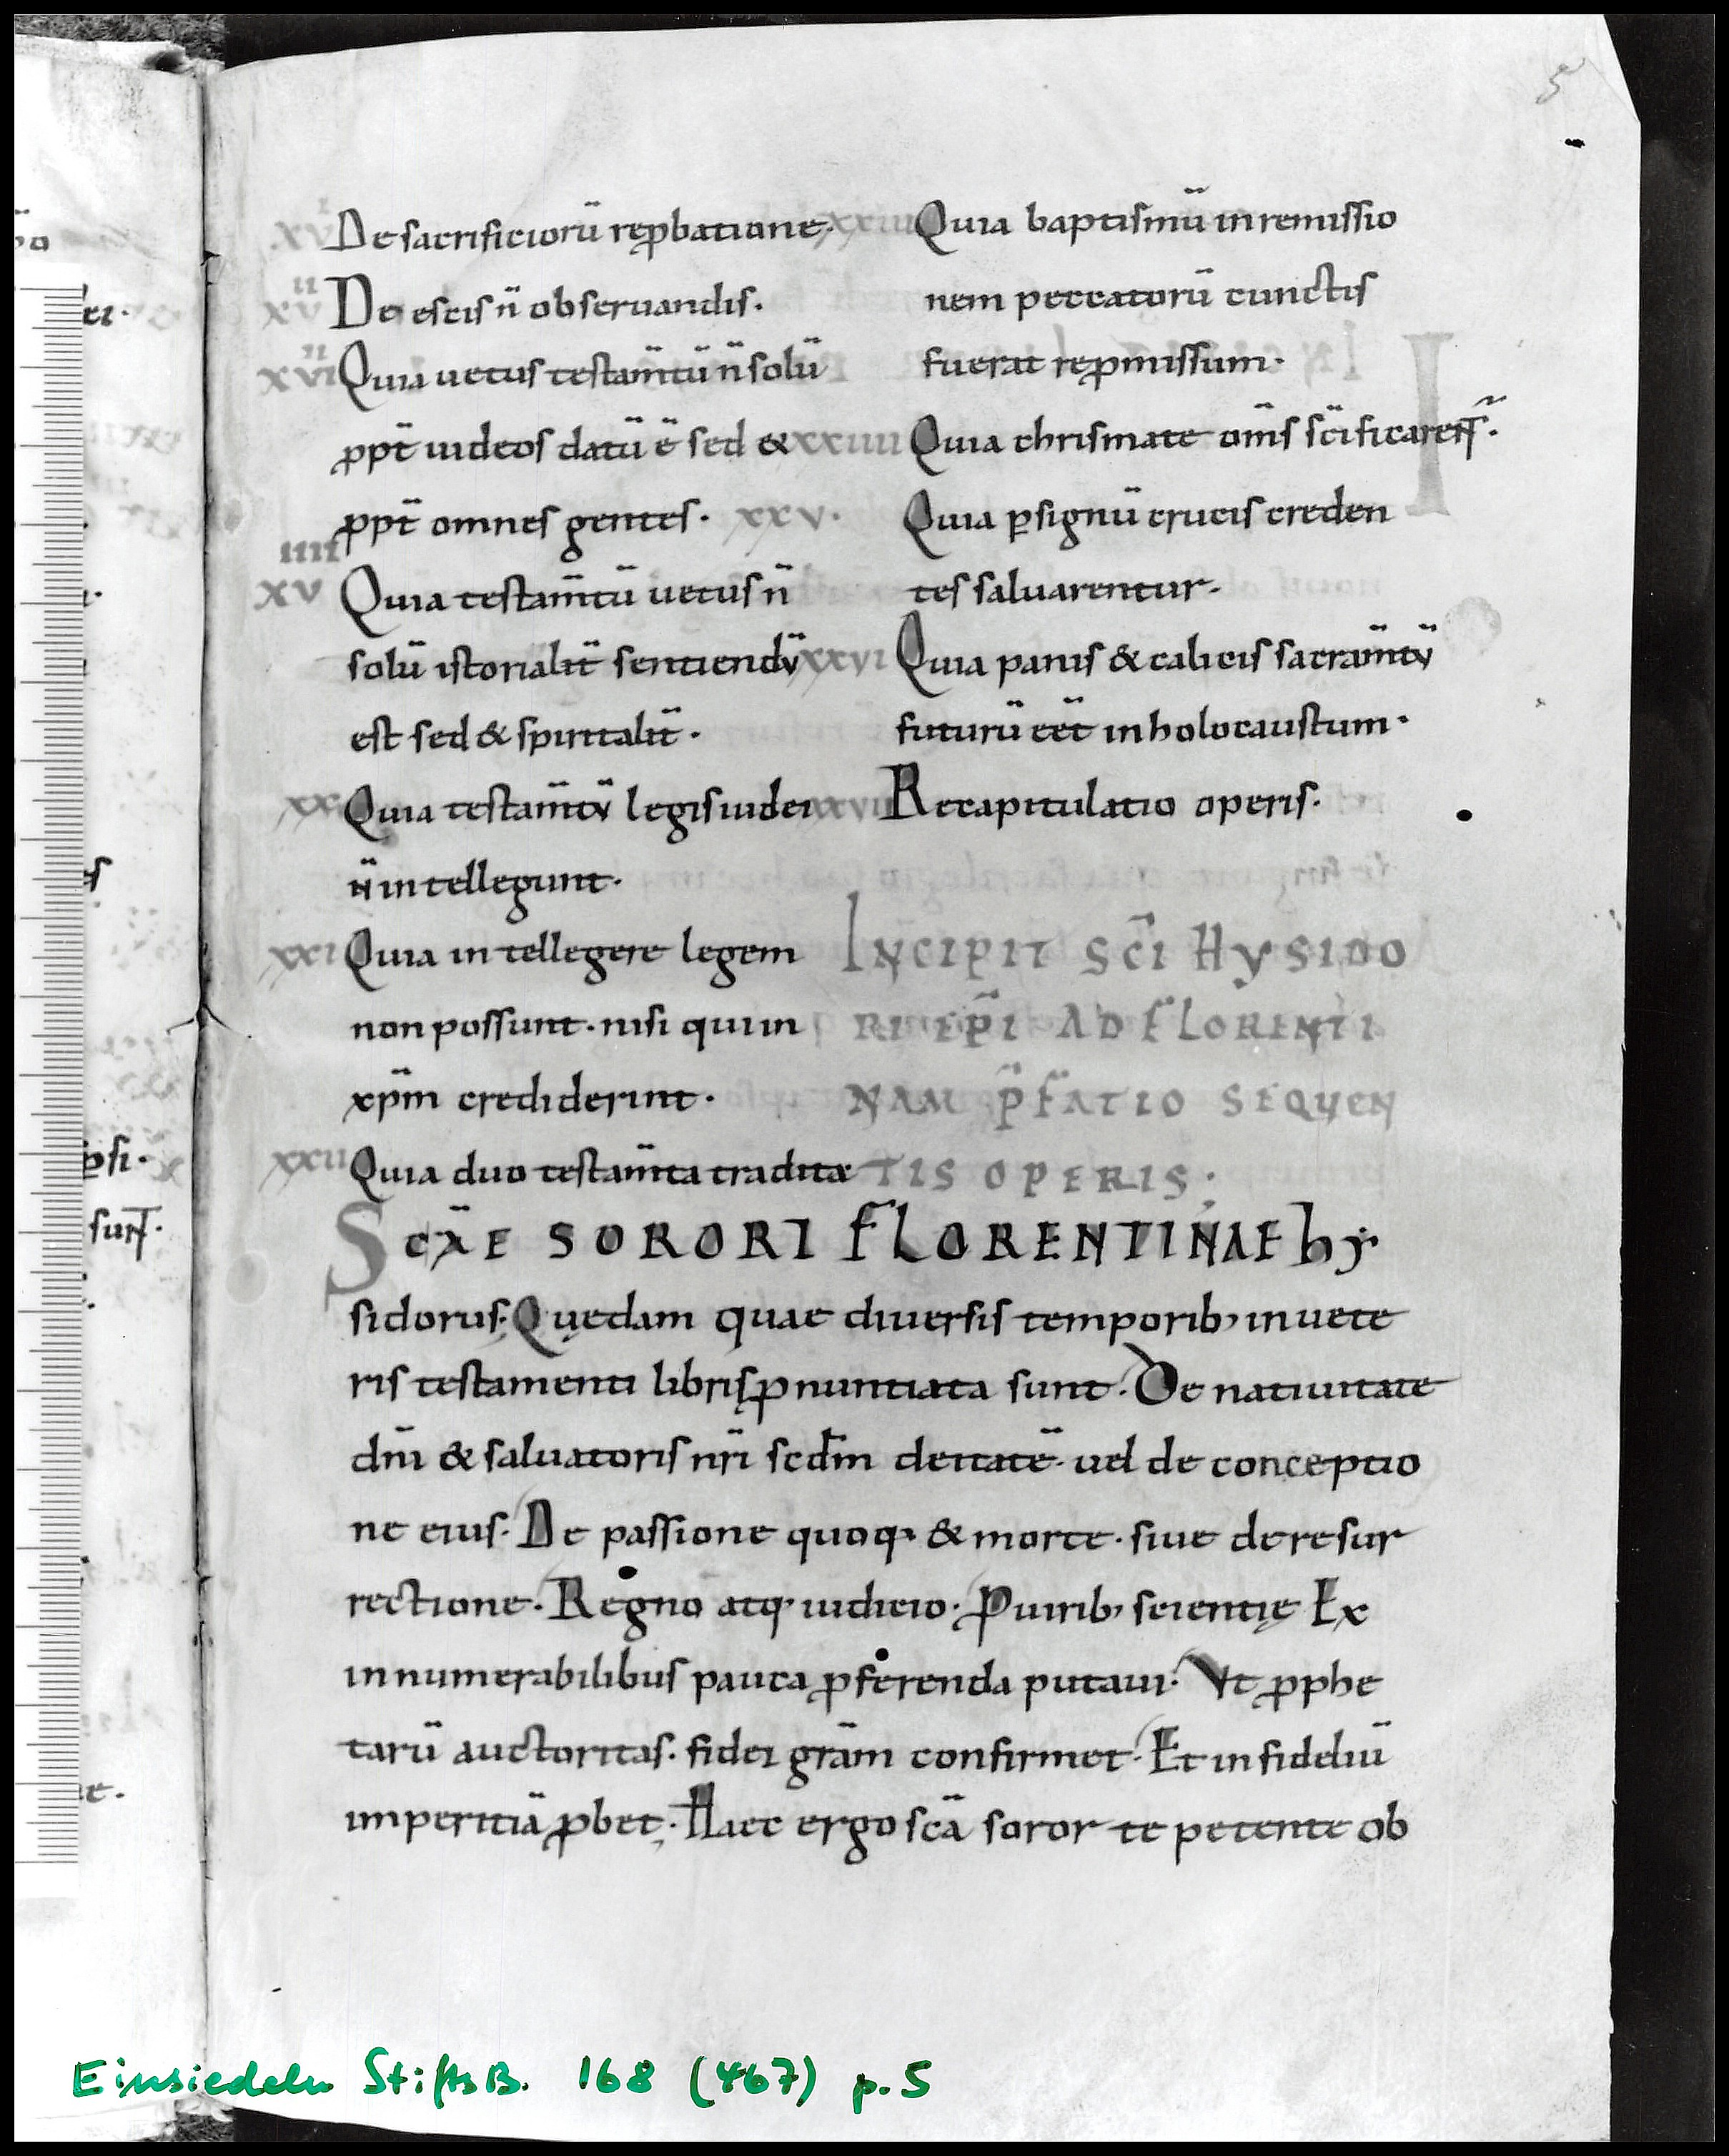 5
xvi De sacrificiorū reꝓbatione.
xvii De escis n̄ obseruandis.
xviii Quia uetus testam̄tū n̄ solū
ꝓpt̄ iudeos datū ē sed &
ꝓpt̄ omnes gentes.
xviiii Quia testam̄tū uetus n̄
solū istorialit̄ sentiendū
est sed & spiritalit̄.
xx Quia testam̄tū legis iudei
n̄ intellegunt.
xxi Quia intellegere legem
non possunt. nisi qui in
xp̄m crediderint.
xxii Quia duo testam̄ta tradita
xxiii Quia baptismū in remissio
nem peccatorū cunctis
fuerat reꝓmissum.
xxiiii Quia chrismate om̄s sc̄ificarent̄.
xxv. Quia ꝑ signū crucis creden
tes saluarentur.
xxvi Quia panis & calicis sacram̄tū
futurū eēt in holocaustum.
xxvii Recapitulatio operis.
INCIPIT SC̄I HYSIDO
RI EP̄I AD FLORENTI
NAM P̄FATIO SEQUEN
TIS OPERIS;
SCĀE SORORI FLORENTINAE hy
sidorus. Quędam quae diuersis temporib; in uete
ris testamenti libris ꝓnuntiata sunt. De natiuitate
dn̄i & saluatoris nr̄i scd̄m deitatē. uel de conceptio
ne eius. De passione quoq; & morte. siue de resur
rectione. Regno atq; iudicio. P uirib; scientię Ex
innumerabilibus pauca ꝓferenda putaui. Vt ꝓphe
tarū auctoritas. fidei grām confirmet. Et infideliū
imperitiā ꝓbet. Haec ergo scā soror te petente ob
Einsiedeln StiftsB. 168 (467) p. 5